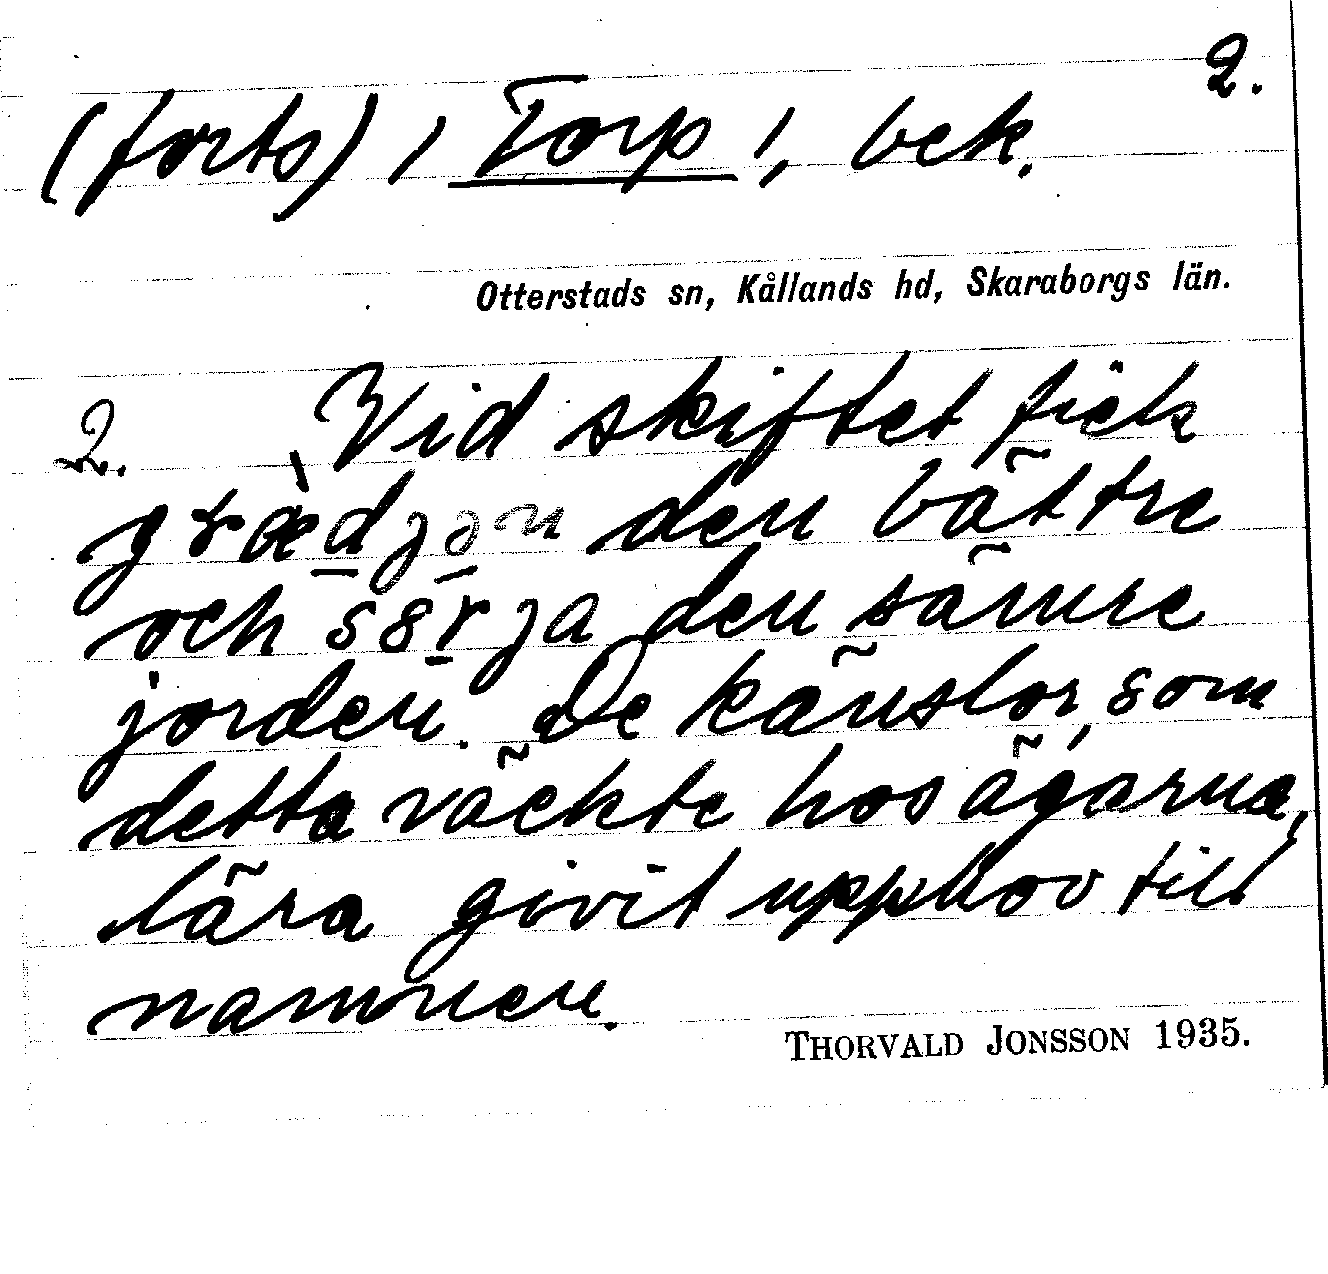 2.
(forts) / Torp /, bek.
Otterstads sn, Kållands hd, Skaraborgs län.
2. Vid skiftet fick
græ̀djən den bättre
och sörja den sämre
jorden. De känslor, som
detta väckte hos ägarna,
lära givit upphov till
namnen.
THORVALD JONSSON 1935.